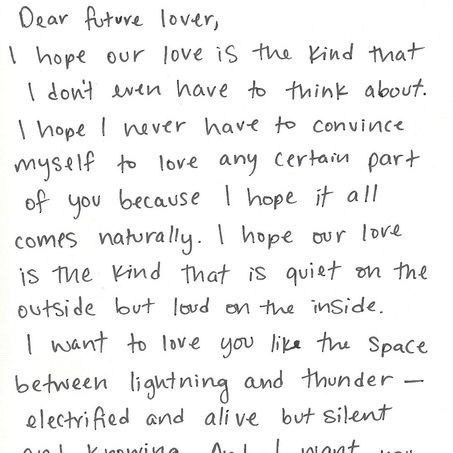 Dear future lover,
I hope our love is the kind that
I don't even have to think about.
I hope I never have to convince
myself to love any certain part
of you because I hope it all
comes naturally. I hope our love
is the kind that is quiet on the
outside but loud on the inside.
I want to love you like the space
between lightning and thunder —
electrified and alive but silent
and knowing. And I want you